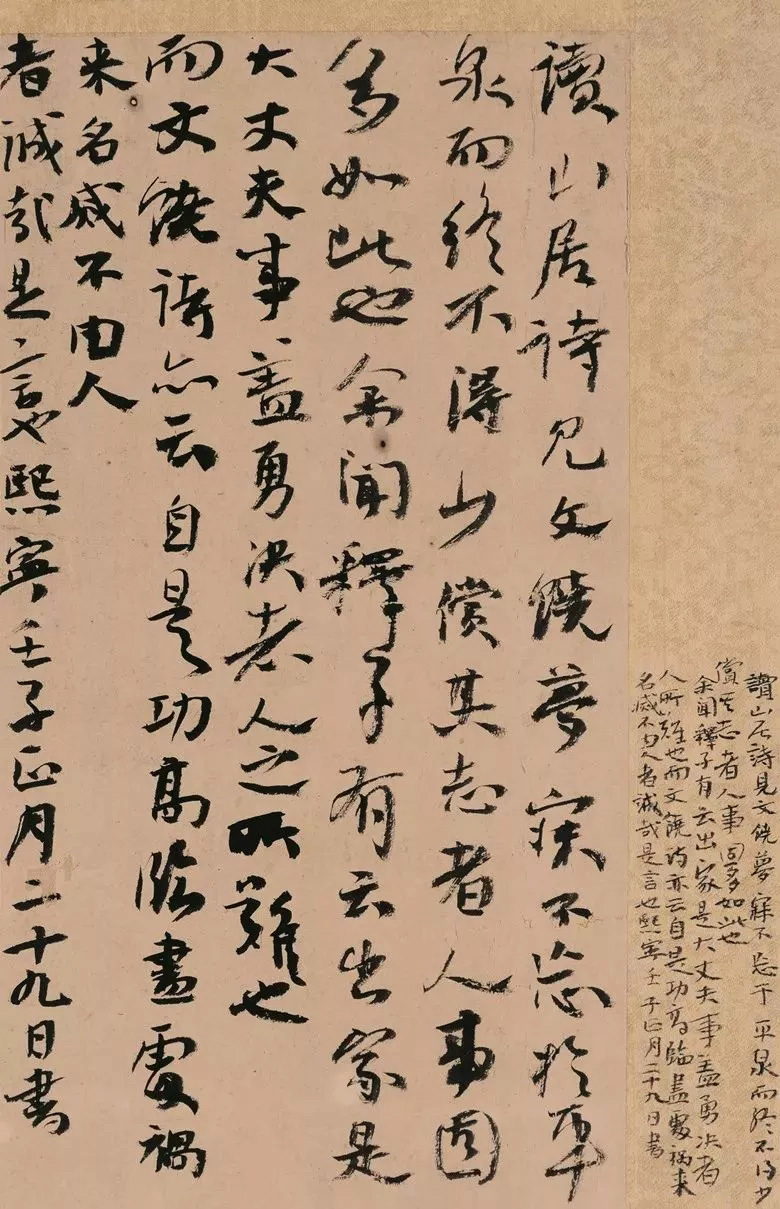 讀山居詩見文饒夢寐不忘于平泉而終不得少
償其志者人事固多如此也
余聞釋子有云出家是大丈夫事蓋勇決者
人所難也而文饒詩亦云自是功高臨盡處禍来
名滅不由人者誠哉是言也熙寧壬子正月二十九日書
讀山居詩見文饒夢寐不忘於平
泉而終不得少償其志者人事固
多如此也余聞釋子有云出家是
大丈夫事蓋勇決者人之所難也
而文饒詩亦云自是功高臨盡處禍
来名滅不由人
者誠哉是言也熙寧壬子正月二十九日書